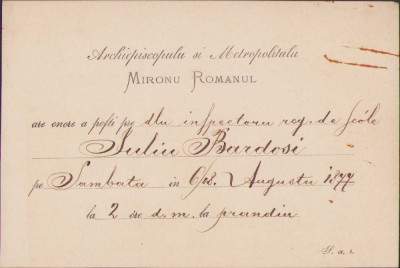 Archiepiscopulu si Metropolitulu
MIRONU ROMANUL
are onore a pofti pre dlu inspectoru reg. de scóle
Iuliu Bardosi
pe Sambata in 6/18. Augustu 1877
la 2 ore d. m. la prandiu
S. a. r.